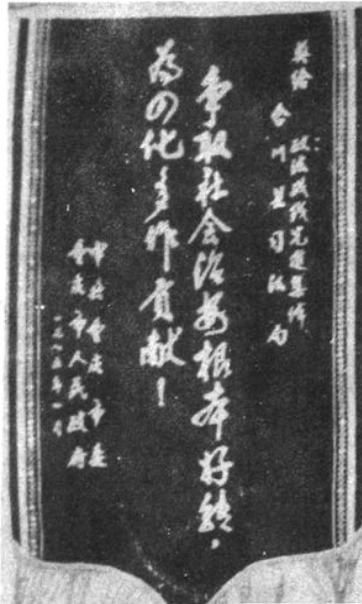 奖给
政法战线先进集体
合川县司法局
争取社会治安根本好转，
为四化多作贡献！
中共重庆市委
重庆市人民政府
一九八五年一月